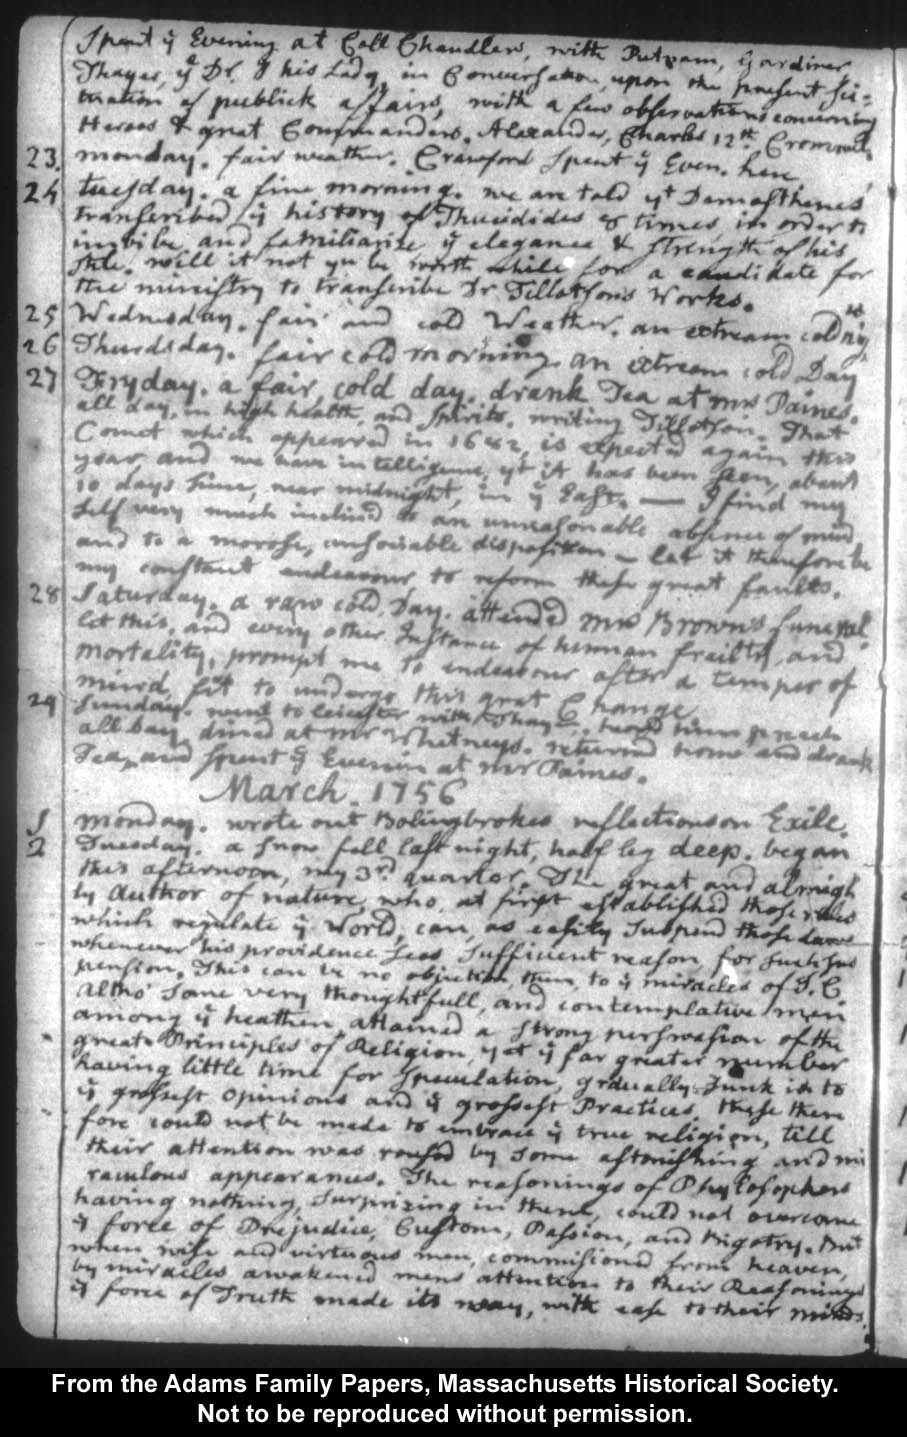 Spent ye Evening at Coll Chandlers, with Putnam, Gardiner
Thayer, ye Dr. & his Lady, in Conversation, upon the present Si-
tuation of publick affairs, with a few observations concerning
Heroes & great Commanders. Alexander, Charles 12th. Cromwel.
23. monday. fair weather. Crawford Spent ye Even. here
24 tuesday. a fine morning. we are told yt Demosthenes
transcribed ye history of Thucidides 8 times, in order to
imbibe and familiarize ye elegance & strength of his
stile. will it not yn be worth while for a candidate for
the ministry to transcribe Dr. Tillotsons Works.
25 Wednesday. fair and cold Weather. an extream cold
26 Thursday. fair cold morning. an extream cold Day
27 Fryday. a fair, cold day. drank Tea at mrs Paines.
all day, in high health, and spirits. writing Tillotson. That
Comet which appeared in 1682, is expected again this
year, and we have intelligence, yt it has been seen, about
10 days since, near midnight, in ye East. — I find my
self very much inclin'd to an unreasonable absence of mind,
and to a morose, unsociable disposition — let it therefore be
my constant endeavour to reform these great faults.
28 Saturday. a raw cold Day. attended mrs Brown's funeral.
let this, and every other Instance of human frailty, and
mortality, prompt me to endeavour after a temper of
mind, fit to undergo this great Change
29 Sunday. went to Leicester with Thayer. heard him preach
all Day. dined at mr Whitneys. returned home and drank
Tea, and Spent ye Evening at mr Paines.
March. 1756
1 monday. wrote out Bolingbrokes reflections on Exile.
2 Tuesday. a snow fell last night, half leg deep. began
this afternoon, my 3rd quarter. The great and almigh
ty Author of nature, who at first established those rules
which regulate ye World, can as easily Suspend those Laws
whenever his providence sees sufficient reason for such sus
pension. This can be no objection, then, to ye miracles of J. C.
altho' Some very thoughtfull, and contemplative men
among ye heathen, attained a strong perswasion of the
great Principles of Religion, yet ye far greater number
having little time for speculation, gradually Sunk in to
ye grossest opinions and ye grossest Practices. these there
fore could not be made to embrace ye true religion, till
their attention was roused by Some astonishing and mi
raculous appearances. The reasonings of Phylosophers
having nothing Surprizing in them, could not overcome
ye force of Prejudice, Custom, Passion, and Bigotry. But
when wise and virtuous men, commissioned from heaven,
by miracles awakened mens attention to their Reasonings
ye force of Truth made its way, with ease to their minds.
From the Adams Family Papers, Massachusetts Historical Society.
Not to be reproduced without permission.